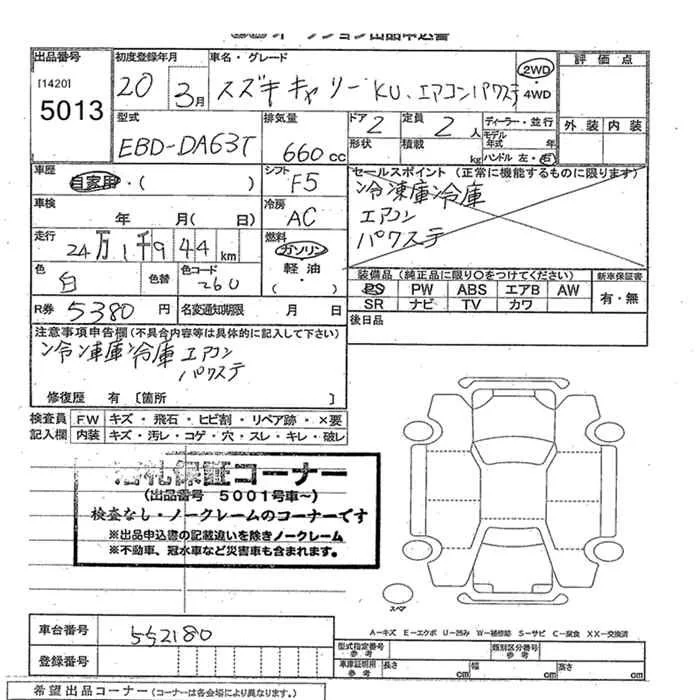 オークション出品申込書
出品番号 初度登録年月 車名・グレード 評価点
[1420]
5013
20 3月 スズキ キャリー KU、エアコンパワステ 2WD・4WD
外装 内装
型式 排気量 ドア 定員 ディーラー・並行
EBD-DA63T 660cc 2 2人 モデル年式 年
形状 積載 kg ハンドル 左・右
車歴 シフト セールスポイント(正常に機能するものに限ります)
自家用・( ) F5 冷凍庫冷庫
エアコン
パワステ
車検 冷房
年 月( 日) AC
走行 燃料
24万1千944km ガソリン
軽油
・( )
色 色コード
白 色替 260
装備品(純正品に限り○をつけてください) 新車保証書
PS PW ABS エアB AW 有・無
SR ナビ TV カワ
R券 5380円 名変通知期限 月 日 後日品
注意事項申告欄(不具合内容等は具体的に記入して下さい)
冷凍庫冷庫 エアコン
パワステ
修復歴 有 〔箇所 〕
検査員 FW キズ・飛石・ヒビ割・リペア跡・×要
記入欄 内装 キズ・汚レ・コゲ・穴・スレ・キレ・破レ
札保証コーナー
(出品番号 5001号車~)
検査なし・ノークレームのコーナーです
※出品申込書の記載違いを除きノークレーム
※不動車、冠水車など災害車も含まれます。
スペア
A-キズ E-エクボ U-凹み W-補修跡 S-サビ C-腐食 XX-交換済
車台番号 552180
型式指定番号 参考 類別区分番号 参考
登録番号
車庫証明用 参考 長さ cm 幅 cm 高さ cm
希望出品コーナー(コーナーは各会場により異なります。)